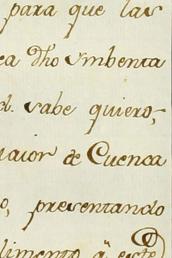 para que las
ea dho Ymbenta
d. sabe quiero,
maior de Cuenca
o, presentando
limento aͣ este